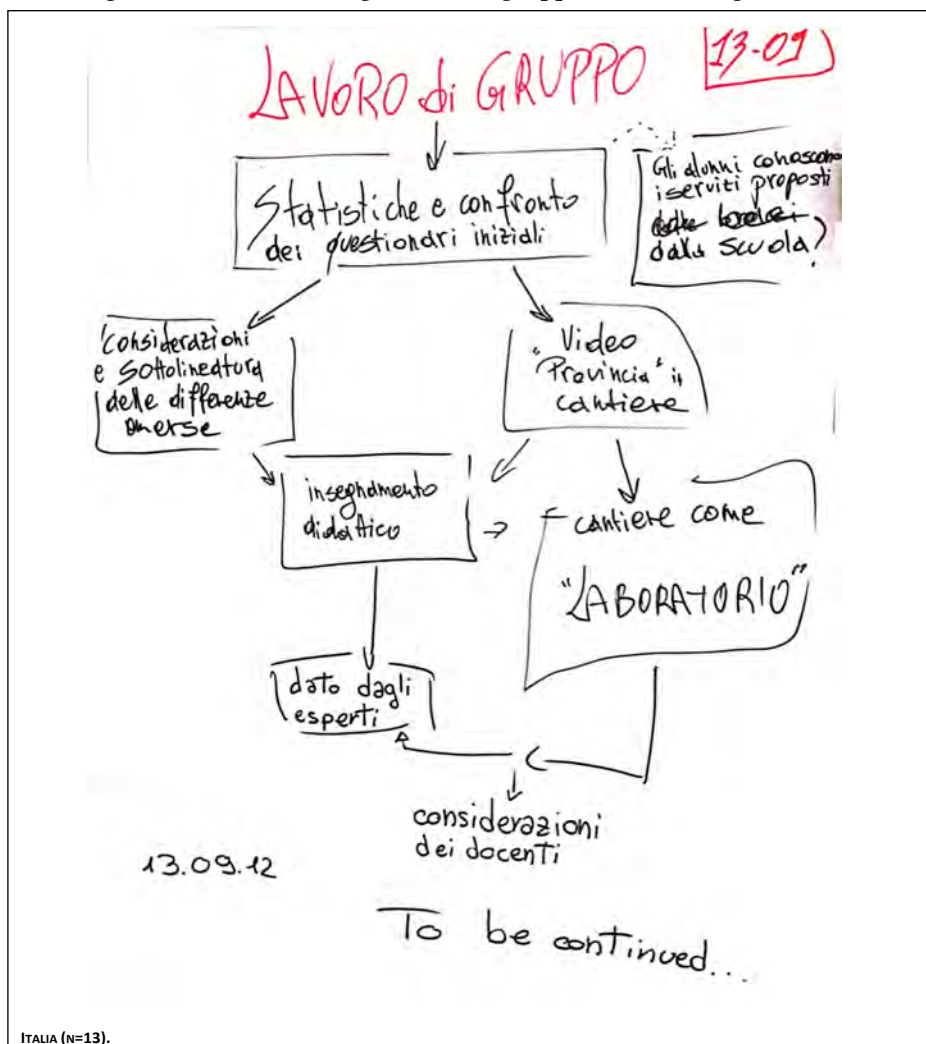 LAVORO di GRUPPO
13-09
Statistiche e confronto
dei questionari iniziali
Gli alunni conoscono
i serviti proposti
dalla scuola?
Considerazioni
e sottolineatura
delle differenze
emerse
Video
"Provincia" in
cantiere
insegnamento
didattico
cantiere come
"LABORATORIO"
dato dagli
esperti
considerazioni
dei docenti
13.09.12
To be continued...
ITALIA (N=13).